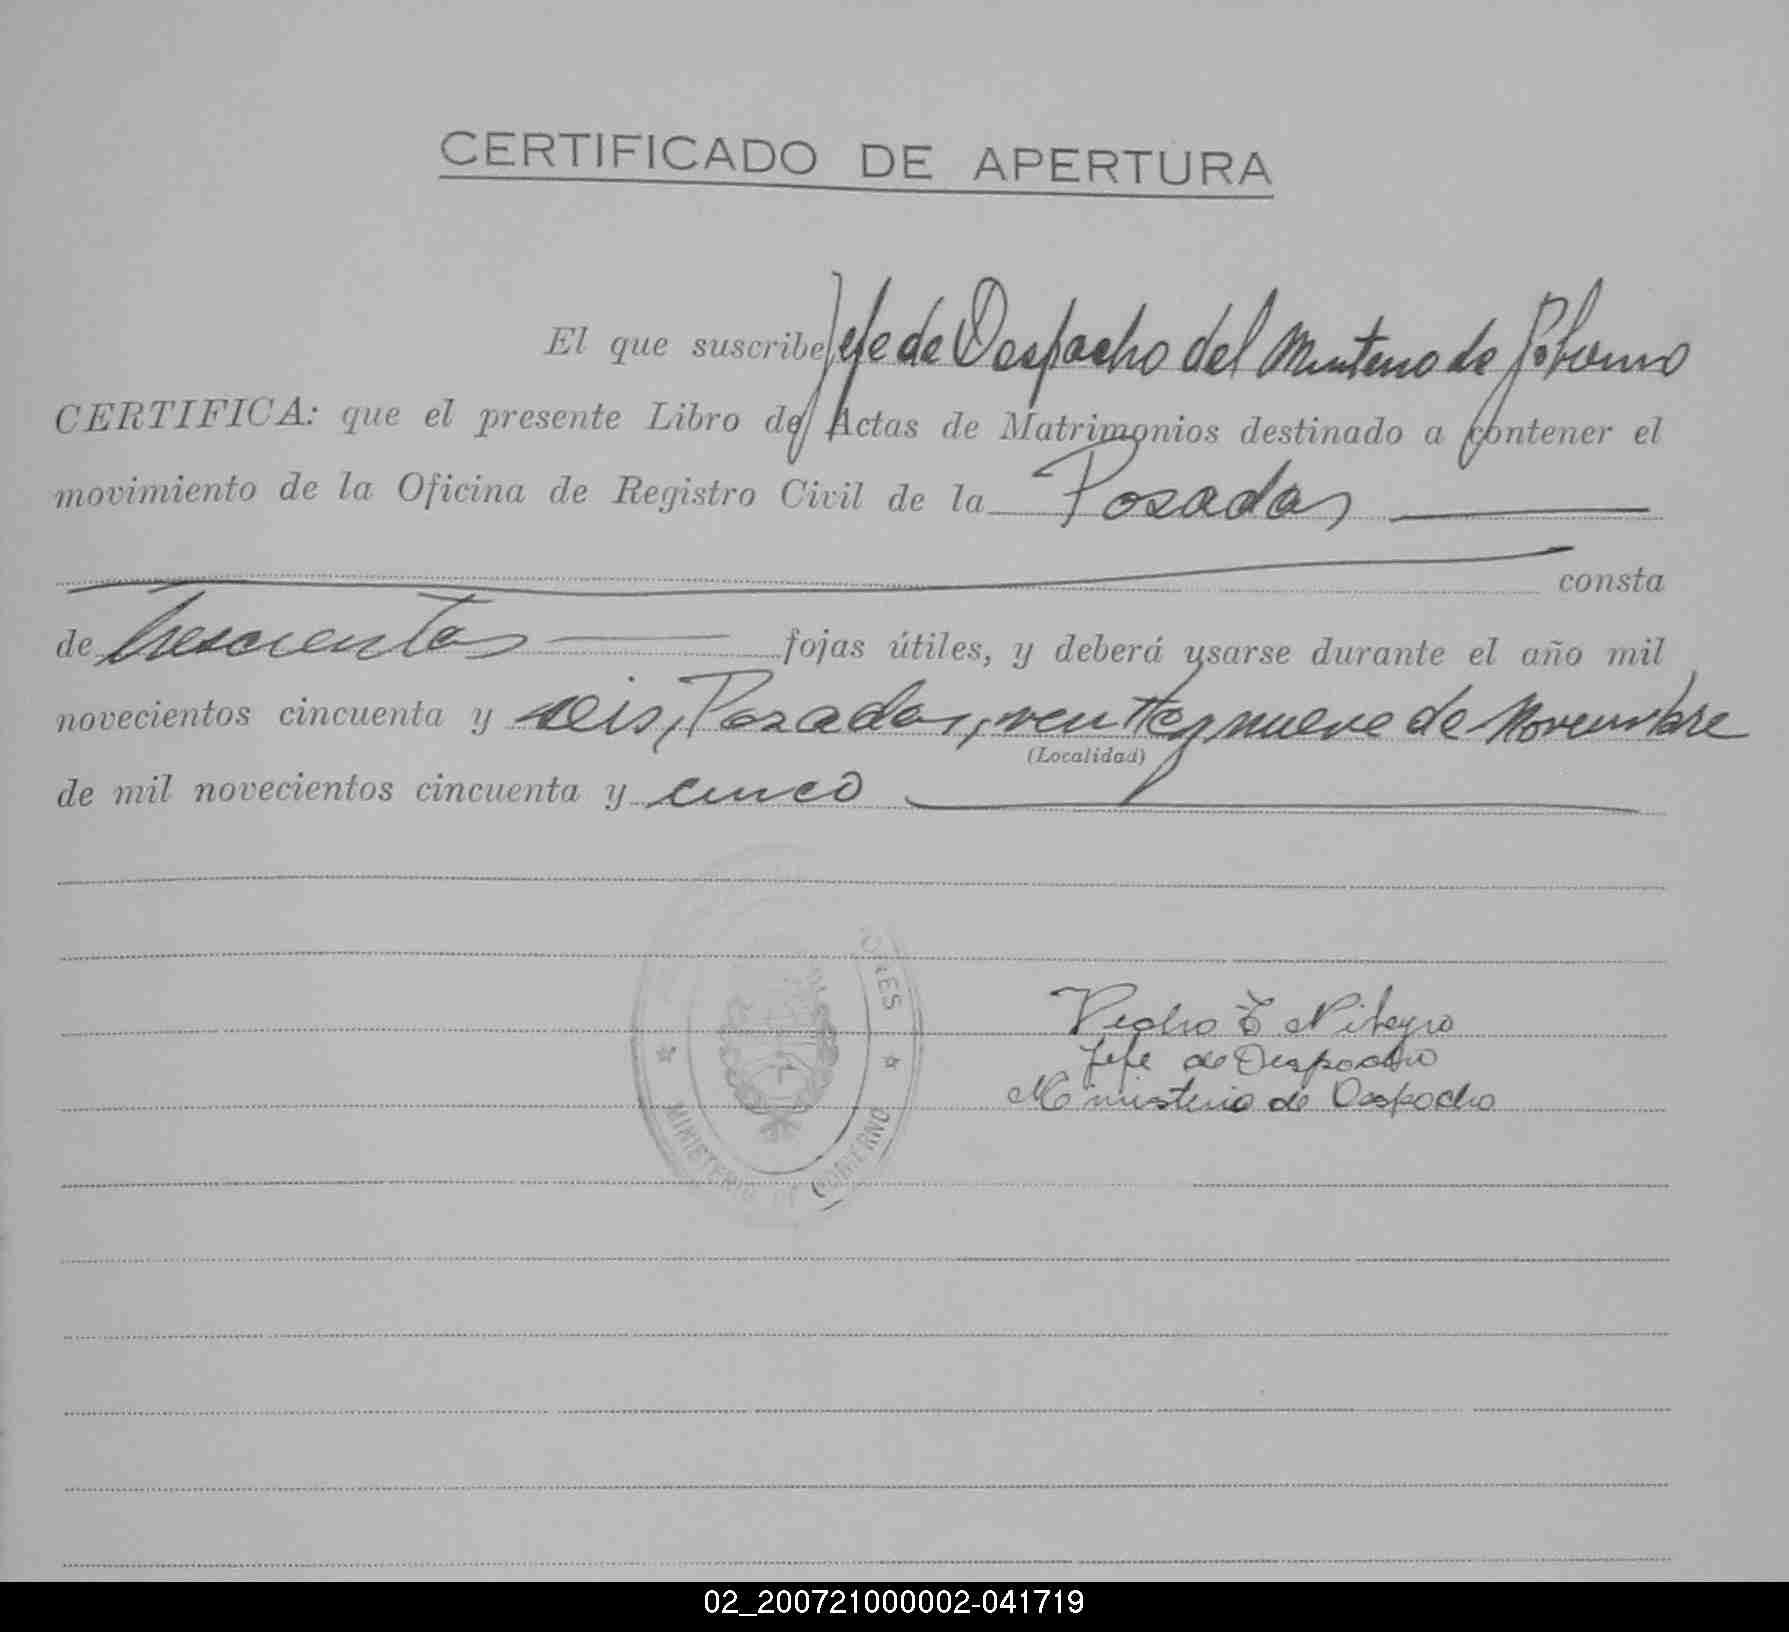 CERTIFICADO DE APERTURA
El que suscribe Jefe de Despacho del Ministerio de Gobierno
CERTIFICA: que el presente Libro de Actas de Matrimonios destinado a contener el
movimiento de la Oficina de Registro Civil de la Posadas
consta
de trescientos fojas útiles, y deberá usarse durante el año mil
novecientos cincuenta y seis, Posadas, veintiy nueve de Noviembre
(Localidad)
de mil novecientos cincuenta y cinco
ONES
Pedro E
Jefe de Despacho
Ministerio de Despacho
MINISTERIO DE GOBIERNO
02_200721000002-041719